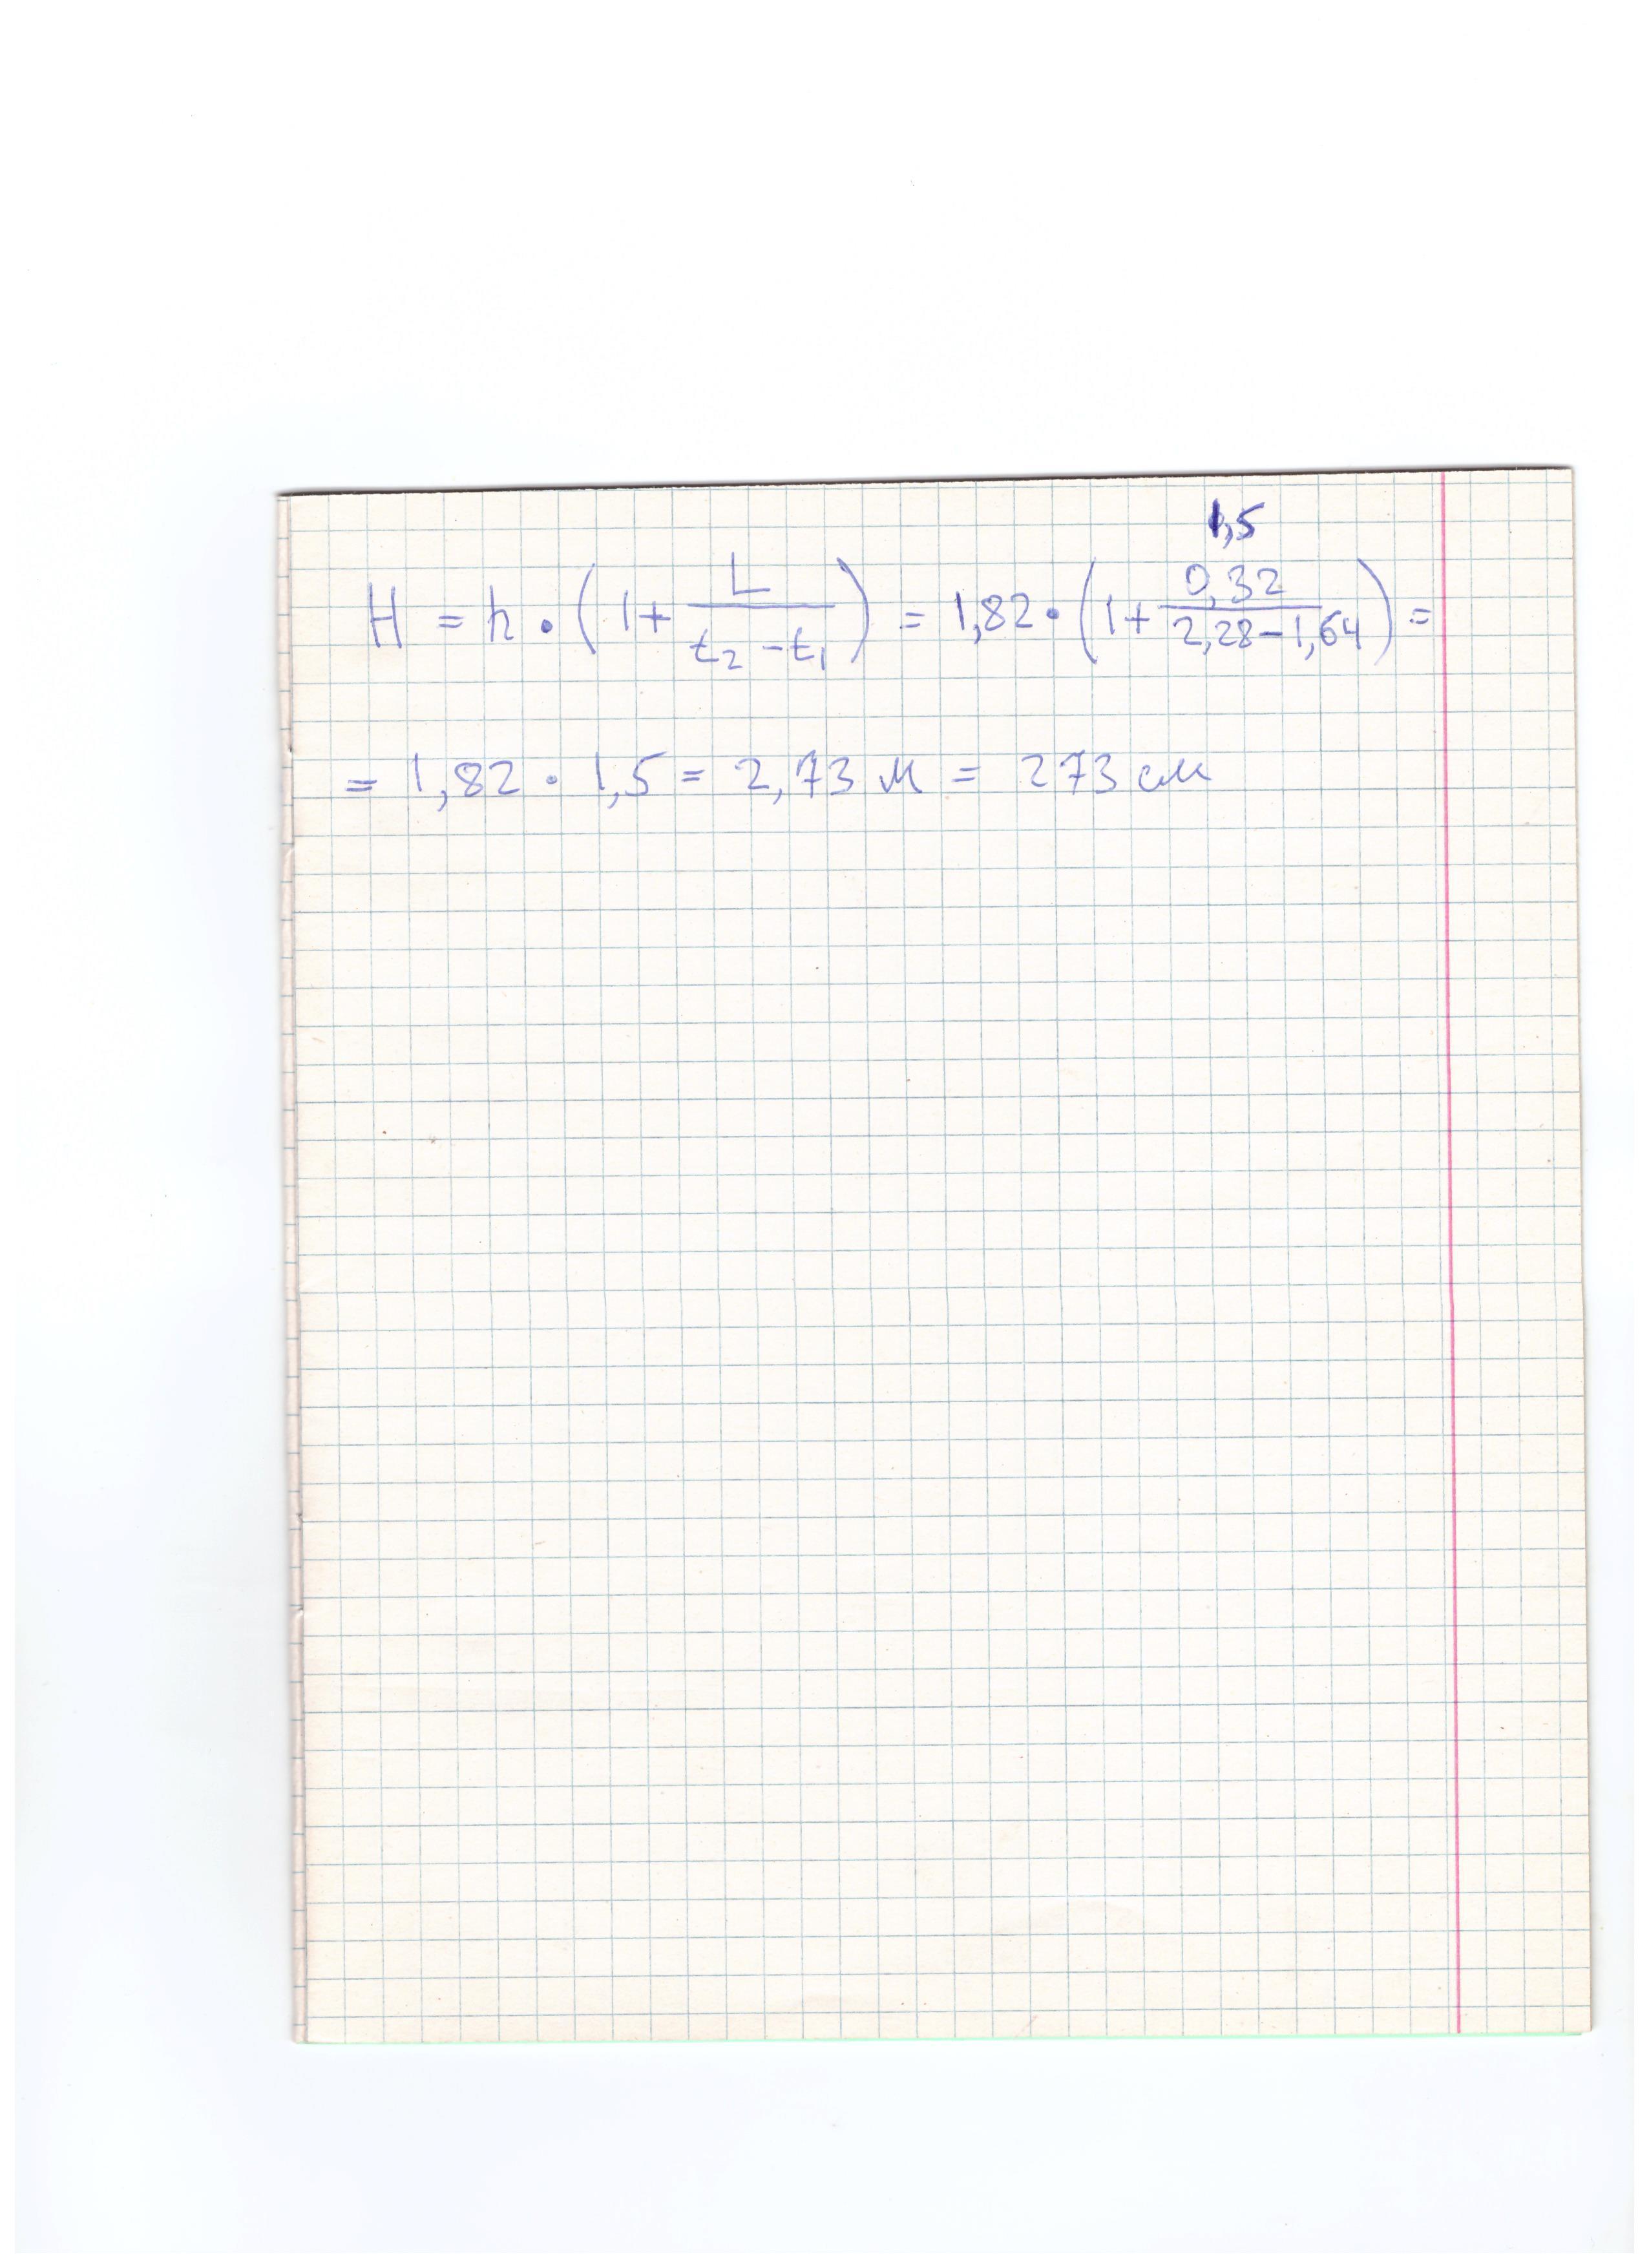 1,5
H = h · (1 + L / (t₂ - t₁)) = 1,82 · (1 + 0,32 / (2,28 - 1,64)) =
= 1,82 · 1,5 = 2,73 м = 273 см